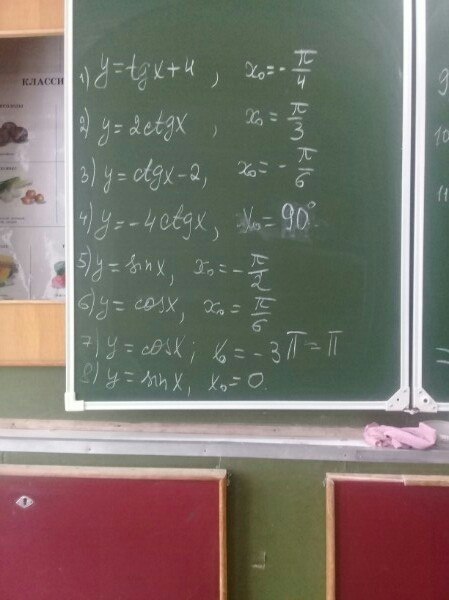 КЛАССИ
1) y = tgx + 4 , x₀ = -π/4
2) y = 2ctgx , x₀ = π/3
3) y = ctgx - 2, x₀ = -π/6
4) y = -4ctgx, x₀ = 90°
5) y = sinx, x₀ = -π/2
6) y = cosx, x₀ = π/6
7) y = cosx; x₀ = -3π = π
8) y = sinx, x₀ = 0.
9
10
11